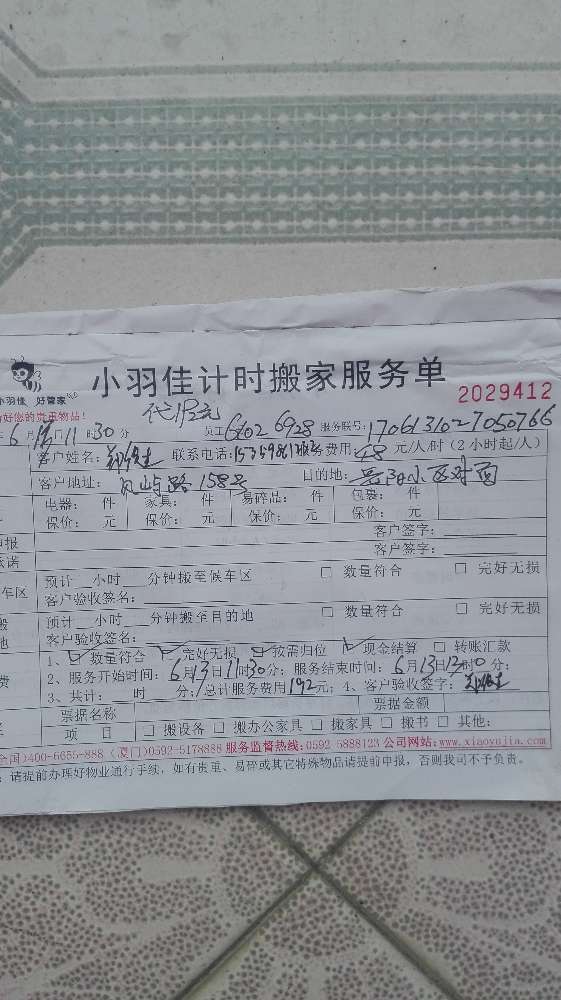 小羽佳 好管家
小羽佳计时搬家服务单
2029412
好您的贵重物品！
6月13日11时30分 员工 6102 6928 服务联号：1706131027050766
客户姓名： 联系电话： 服务费用：48元/人/时（2小时起/人）
客户地址：凤屿路158号 目的地：岳阳小区对面
电器： 件 家具： 件 易碎品： 件 包裹： 件
保价： 元 保价： 元 保价： 元 保价： 元
申报 客户签字：
承诺 客户签字：
车区 预计 小时 分钟搬至候车区 □ 数量符合 □ 完好无损
客户验收签名：
预计 小时 分钟搬至目的地 □ 数量符合 □ 完好无损
地 客户验收签名：
1、☑ 数量符合 ☑ 完好无损 ☑ 按需归位 ☑ 现金结算 □ 转账汇款
费 2、服务开始时间：6月13日11时30分；服务结束时间：6月13日13时30分；
3、共计： 时 分；总计服务费用192元；4、客户验收签字：
票据名称 票据金额
项 目 □ 搬设备 □ 搬办公家具 □ 搬家具 □ 搬书 □ 其他：
全国)400-6655-888 (厦门)0592-5178888 服务监督热线:0592 5888123 公司网站:www.xiaoyujia.com
：请提前办理好物业通行手续，如有贵重、易碎或其它特殊物品请提前申报，否则我司不予负责。